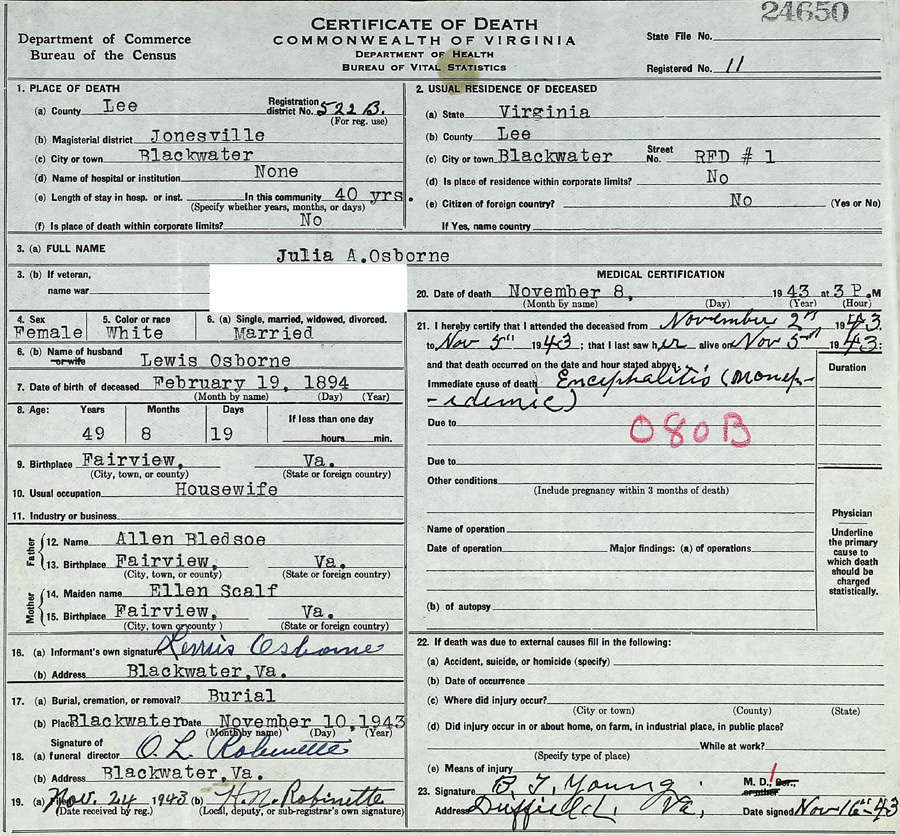 24650
CERTIFICATE OF DEATH
COMMONWEALTH OF VIRGINIA
DEPARTMENT OF HEALTH
BUREAU OF VITAL STATISTICS
Department of Commerce
Bureau of the Census
State File No.
Registered No. 11
1. PLACE OF DEATH
(a) County Lee Registration district No. 522 B.
(For reg. use)
(b) Magisterial district Jonesville
(c) City or town Blackwater
(d) Name of hospital or institution None
(e) Length of stay in hosp. or inst. In this community 40 yrs.
(Specify whether years, months, or days)
(f) Is place of death within corporate limits? No
2. USUAL RESIDENCE OF DECEASED
(a) State Virginia
(b) County Lee
(c) City or town Blackwater Street No. RFD # 1
(d) Is place of residence within corporate limits? No
(e) Citizen of foreign country? No (Yes or No)
If Yes, name country
3. (a) FULL NAME Julia A.Osborne
3. (b) If veteran,
name war
4. Sex 5. Color or race 6. (a) Single, married, widowed, divorced.
Female White Married
6. (b) Name of husband
or wife Lewis Osborne
7. Date of birth of deceased February 19, 1894
(Month by name) (Day) (Year)
8. Age: Years Months Days If less than one day
49 8 19 hours min.
9. Birthplace Fairview, Va.
(City, town, or county) (State or foreign country)
10. Usual occupation Housewife
11. Industry or business
Father
12. Name Allen Bledsoe
13. Birthplace Fairview, Va.
(City, town, or county) (State or foreign country)
Mother
14. Maiden name Ellen Scalf
15. Birthplace Fairview, Va.
(City, town or county) (State or foreign country)
16. (a) Informant's own signature Osborne
(b) Address Blackwater,Va.
17. (a) Burial, cremation, or removal? Burial
(b) Place Blackwater Date November 10,1943
(Month by name) (Day) (Year)
Signature of
18. (a) funeral director O. L. Robinette
(b) Address Blackwater,Va.
19. (a) Filed Nov. 24 1943 (b) H. N. Robinette
(Date received by reg.) (Local, deputy, or sub-registrar's own signature)
MEDICAL CERTIFICATION
20. Date of death November 8, 1943 at 3 P.M
(Month by name) (Day) (Year) (Hour)
21. I hereby certify that I attended the deceased from November 2nd 1943
to Nov 5th 1943; that I last saw her alive on Nov 5th 1943;
and that death occurred on the date and hour stated above.
Duration
Immediate cause of death Encephalitis (nonep-
-idemic)
Due to 080B
Due to
Other conditions
(Include pregnancy within 3 months of death)
Name of operation
Date of operation Major findings: (a) of operations
(b) of autopsy
Physician
Underline
the primary
cause to
which death
should be
charged
statistically.
22. If death was due to external causes fill in the following:
(a) Accident, suicide, or homicide (specify)
(b) Date of occurrence
(c) Where did injury occur?
(City or town) (County) (State)
(d) Did injury occur in or about home, on farm, in industrial place, in public place?
While at work?
(Specify type of place)
(e) Means of injury
23. Signature B. T. Young M. D., Cor.,
or other
Address Duffield, Va, Date signed Nov 16th -43